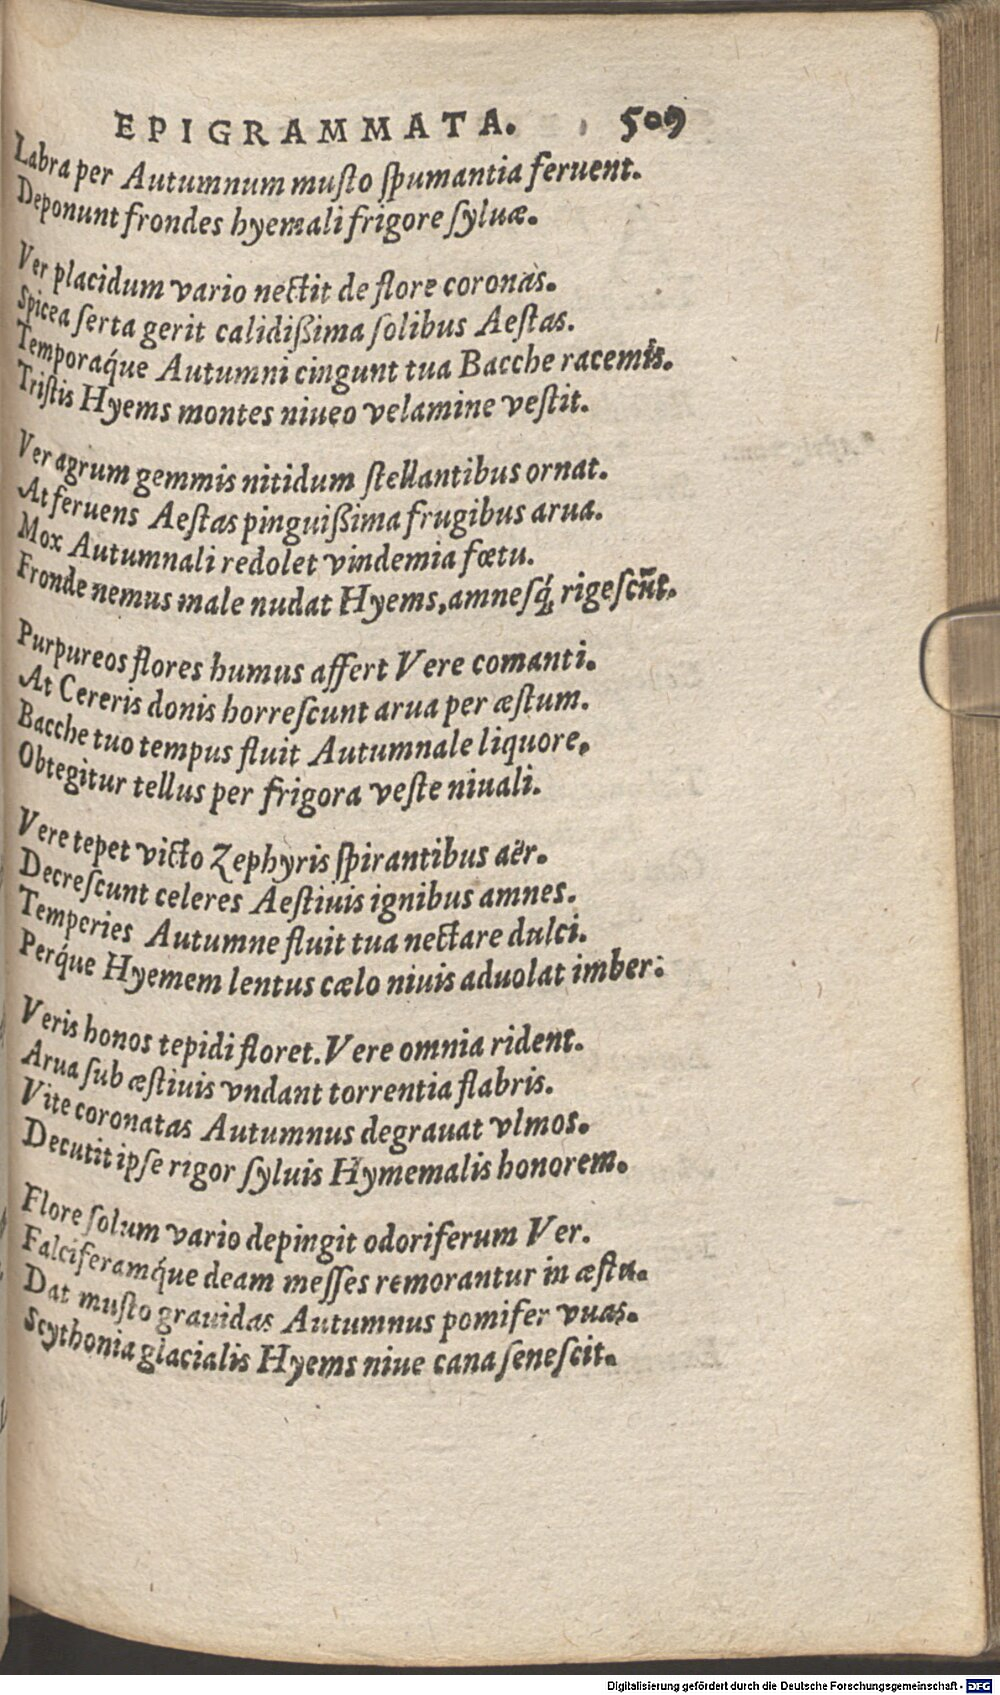 EPIGRAMMATA. 509
Labra per Autumnum muſto ſpumantia feruent.
Deponunt frondes hyemali frigore ſyluæ.
Ver placidum vario nectit de flore coronas.
Spicea ſerta gerit calidißima ſolibus Aeſtas.
Temporáque Autumni cingunt tua Bacche racemis.
Triſtis Hyems montes niueo velamine veſtit.
Ver agrum gemmis nitidum ſtellantibus ornat.
At feruens Aeſtas pinguißima frugibus arua.
Mox Autumnali redolet vindemia fœtu.
Fronde nemus male nudat Hyems, amneſq́; rigeſcũt.
Purpureos flores humus affert Vere comanti.
At Cereris donis horreſcunt arua per æſtum.
Bacche tuo tempus fluit Autumnale liquore.
Obtegitur tellus per frigora veſte niuali.
Vere tepet victo Zephyris ſpirantibus aër.
Decreſcunt celeres Aeſtiuis ignibus amnes.
Temperies Autumne fluit tua nectare dulci.
Perq́ue Hyemem lentus cælo niuis aduolat imber:
Veris honos tepidi floret. Vere omnia rident.
Arua ſub æſtiuis vndant torrentia flabris.
Vite coronatas Autumnus degrauat vlmos.
Decutit ipſe rigor ſyluis Hymemalis honorem.
Flore ſolum vario depingit odoriferum Ver.
Falciferamq́ue deam meſſes remorantur in æſtu.
Dat muſto grauidas Autumnus pomifer vuas.
Scythonia glacialis Hyems niue cana ſeneſcit.
Digitalisierung gefördert durch die Deutsche Forschungsgemeinschaft - DFG